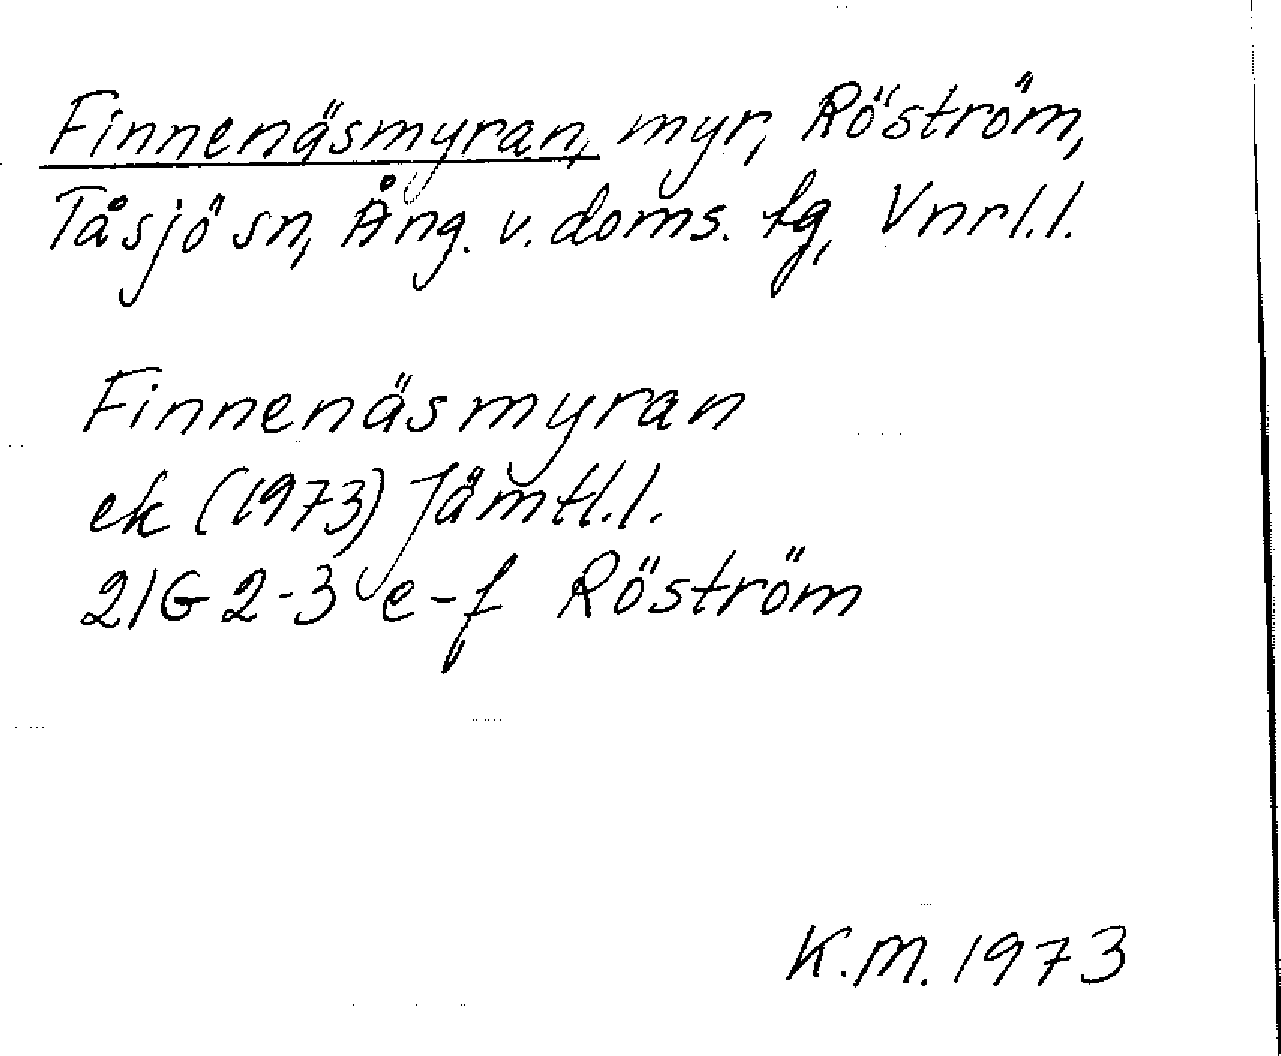 Finnenäsmyran, myr, Röström,
Tåsjö sn, Ång. v. doms. tg, Vnrl.l.
Finnenäsmyran
ek (1973) Jämtl.l.
21G 2-3 e-f Röström
K.M. 1973